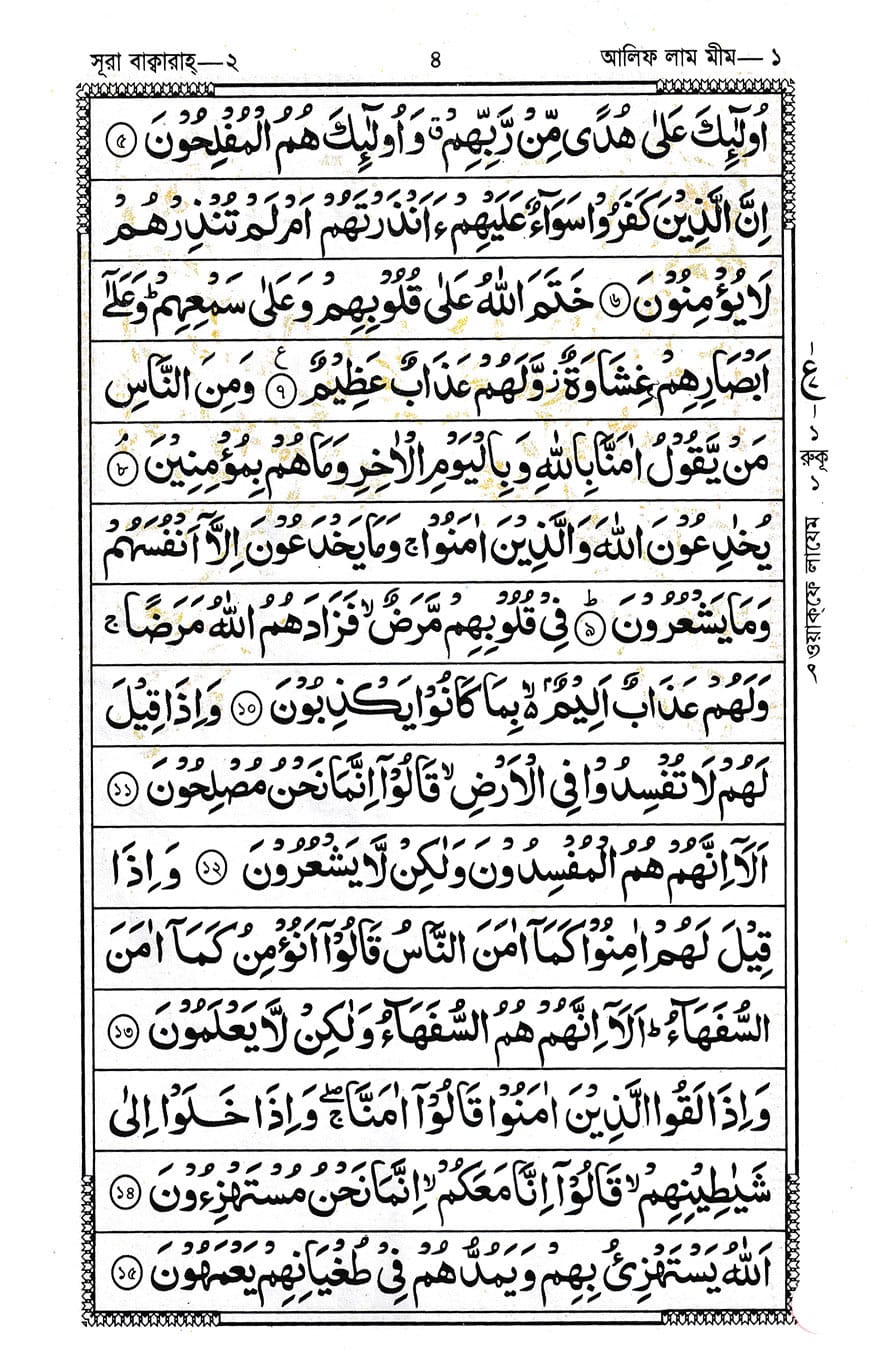 সূরা বাক্বারাহ্—২ ৪ আলিফ লাম মীম—১
اُولٰٓئِكَ عَلٰى هُدًى مِّنْ رَّبِّهِمْ ۗ وَ اُولٰٓئِكَ هُمُ الْمُفْلِحُوْنَ ৫
اِنَّ الَّذِيْنَ كَفَرُوْا سَوَآءٌ عَلَيْهِمْ ءَاَنْذَرْتَهُمْ اَمْ لَمْ تُنْذِرْهُمْ
لَا يُؤْمِنُوْنَ ৬ خَتَمَ اللّٰهُ عَلٰى قُلُوْبِهِمْ وَعَلٰى سَمْعِهِمْ ؕ وَعَلٰٓى
اَبْصَارِهِمْ غِشَاوَةٌ ز وَّلَهُمْ عَذَابٌ عَظِيْمٌ ع ৭ وَمِنَ النَّاسِ
مَنْ يَّقُوْلُ اٰمَنَّا بِاللّٰهِ وَبِالْيَوْمِ الْاٰخِرِ وَمَا هُمْ بِمُؤْمِنِيْنَ ۘ ৮
يُخٰدِعُوْنَ اللّٰهَ وَالَّذِيْنَ اٰمَنُوْا ج وَمَا يَخْدَعُوْنَ اِلَّآ اَنْفُسَهُمْ
وَمَا يَشْعُرُوْنَ ؕ ৯ فِيْ قُلُوْبِهِمْ مَّرَضٌ ۙ فَزَادَهُمُ اللّٰهُ مَرَضًا ج
وَلَهُمْ عَذَابٌ اَلِيْمٌ ۢ ۙ بِمَا كَانُوْا يَكْذِبُوْنَ ১০ وَاِذَا قِيْلَ
لَهُمْ لَا تُفْسِدُوْا فِي الْاَرْضِ ۙ قَالُوْٓا اِنَّمَا نَحْنُ مُصْلِحُوْنَ ১১
اَلَآ اِنَّهُمْ هُمُ الْمُفْسِدُوْنَ وَلٰكِنْ لَّا يَشْعُرُوْنَ ১২ وَاِذَا
قِيْلَ لَهُمْ اٰمِنُوْا كَمَآ اٰمَنَ النَّاسُ قَالُوْٓا اَنُؤْمِنُ كَمَآ اٰمَنَ
السُّفَهَآءُ ؕ اَلَآ اِنَّهُمْ هُمُ السُّفَهَآءُ وَلٰكِنْ لَّا يَعْلَمُوْنَ ১৩
وَاِذَا لَقُوا الَّذِيْنَ اٰمَنُوْا قَالُوْٓا اٰمَنَّا ج ۖ وَاِذَا خَلَوْا اِلٰى
شَيٰطِيْنِهِمْ ۙ قَالُوْٓا اِنَّا مَعَكُمْ ۙ اِنَّمَا نَحْنُ مُسْتَهْزِءُوْنَ ১৪
اَللّٰهُ يَسْتَهْزِئُ بِهِمْ وَيَمُدُّهُمْ فِيْ طُغْيَانِهِمْ يَعْمَهُوْنَ ১৫
ع
রুকূ ১
ওয়াক্‌ফে লাযেম